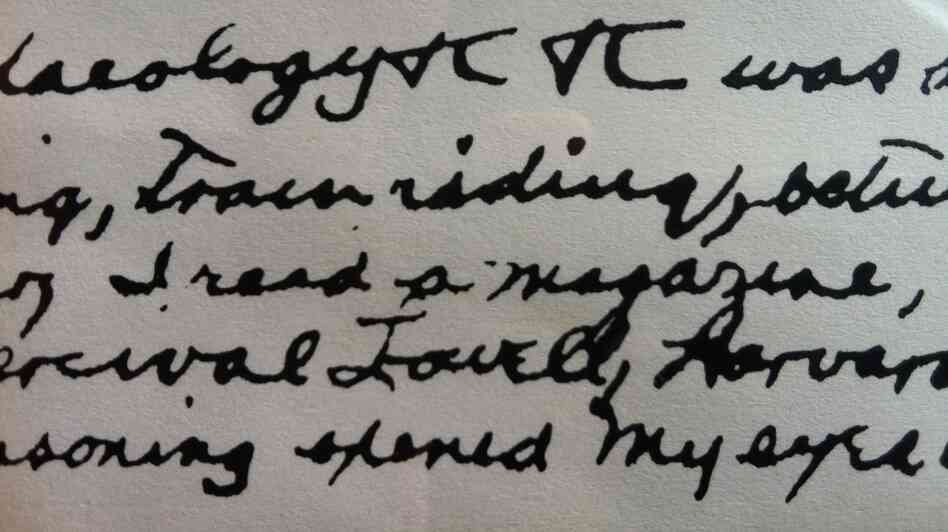 haeology π π was
ng, Train riding, betw
I read a magazine,
ercival Lowell, Harvar
asoning opened My eyes